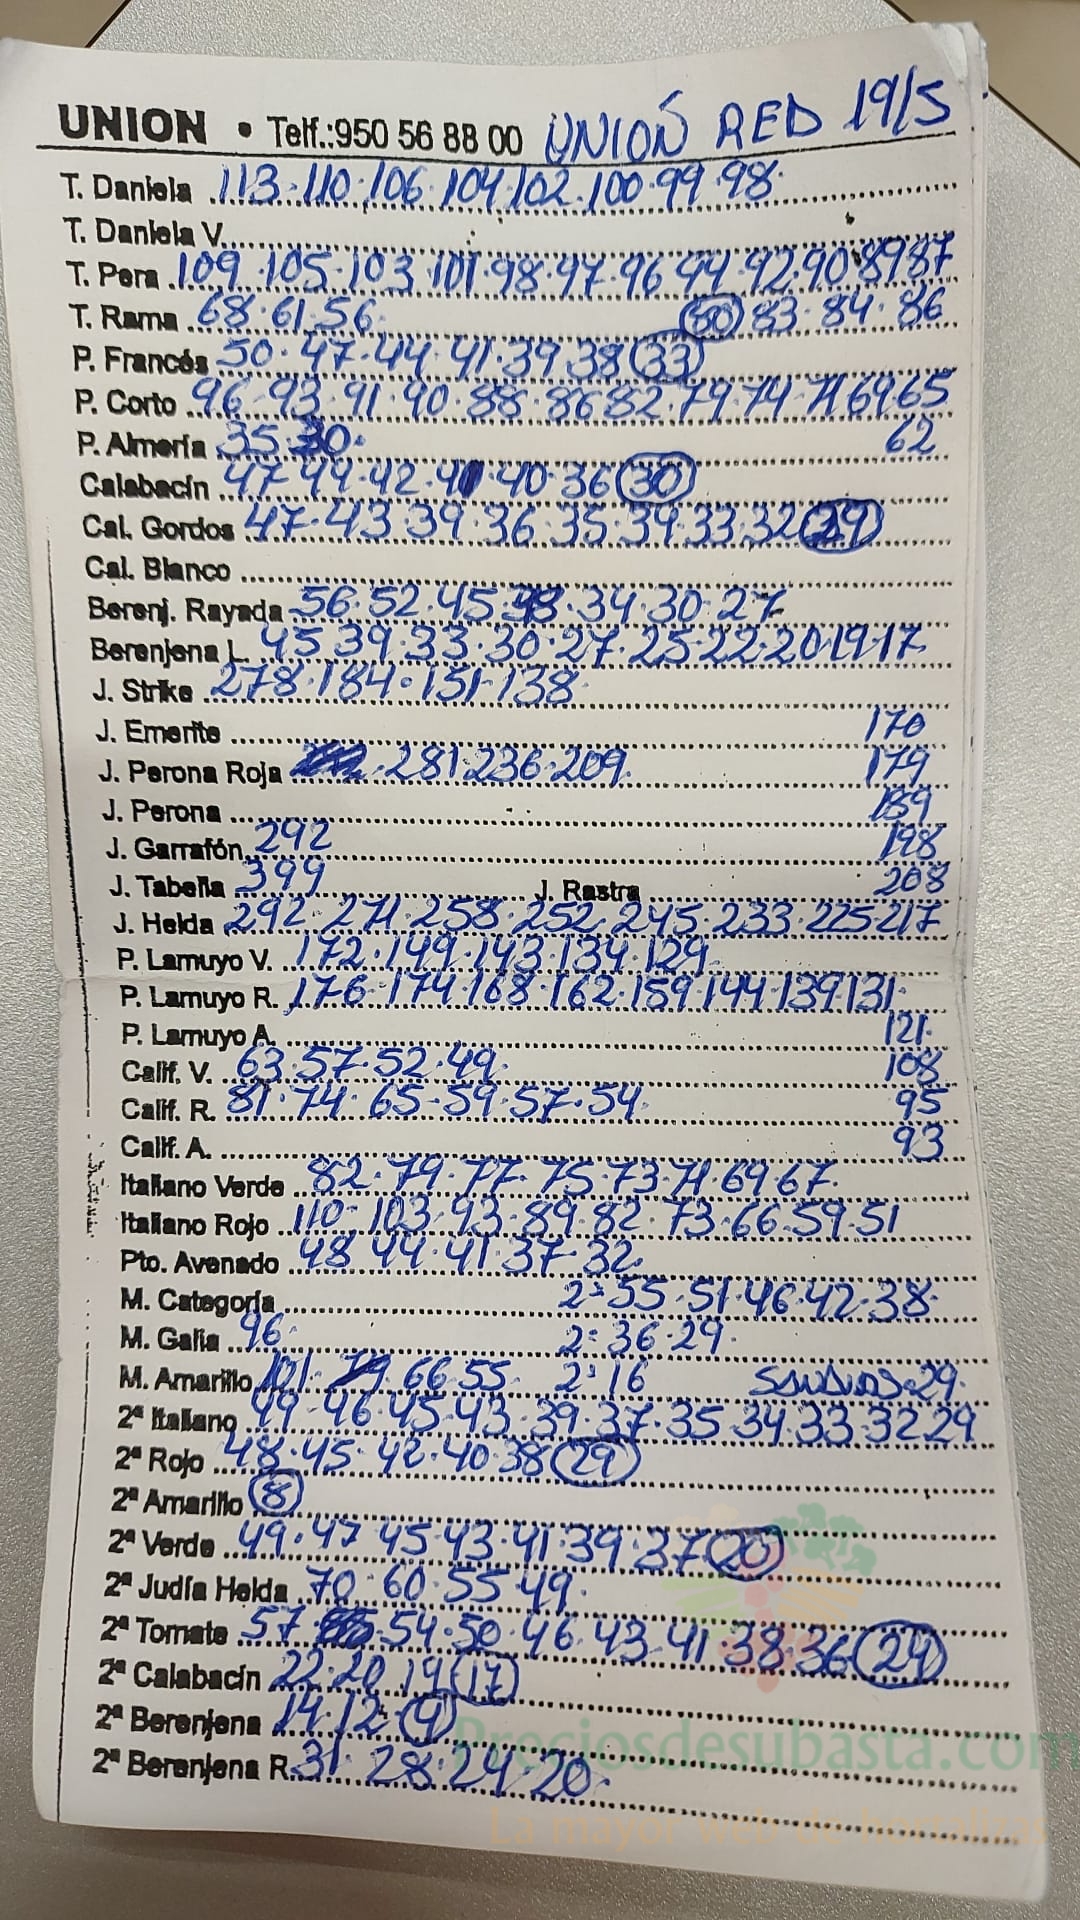 UNION • Telf.:950 56 88 00 UNIÓN RED 19/5
T. Daniela 113·110·106·104·102·100·99·98·
T. Daniela V.
T. Pera 109·105·103·101·98·97·96·94·92·90·89·87
T. Rama 68·61·56· (80) 83·84·86
P. Francés 50·47·44·41·39·38 (33)
P. Corto 96·93·91·90·88·86·82·79·74·71·69·65
P. Almería 35·30· 62
Calabacín 47·44·42·41·40·36 (30)
Cal. Gordos 47·43·39·36·35·34·33·32 (29)
Cal. Blanco
Berenj. Rayada 56·52·45·38·34·30·27
Berenjena L. 45·39·33·30·27·25·22·20·19·17
J. Strike 278·184·151·138·
J. Emerite 170
J. Perona Roja 281·236·209 179
J. Perona 189
J. Garrafón 292 198
J. Tabella 399 J. Rastra 208
J. Helda 292·271·258·252·245·233·225·217
P. Lamuyo V. 172·149·143·134·129
P. Lamuyo R. 176·174·168·162·159·144·139·131·
P. Lamuyo A. 121·
Calif. V. 63·57·52·49· 108
Calif. R. 81·74·65·59·57·54 95
Calif. A. 93
Italiano Verde 82·79·77·75·73·71·69·67·
Italiano Rojo 110·103·93·89·82·73·66·59·51
Pto. Avenado 48·44·41·37·32
M. Categoría 2ª 55·51·46·42·38·
M. Galia 96· 2ª 36·29·
M. Amarillo 101·79·66·55· 2ª 16 SANDIAS·29·
2ª Italiano 49·46·45·43·39·37·35·34·33·32·29
2ª Rojo 48·45·42·40·38 (29)
2ª Amarillo (8)
2ª Verde 49·47·45·43·41·39·37 (20)
2ª Judía Helda 70·60·55·49·
2ª Tomate 57·54·50·46·43·41·38·36 (29)
2ª Calabacín 22·20·19 (17)
2ª Berenjena 14·12· (9)
Preciosdesubasta.com
2ª Berenjena R. 31·28·24·20·
La mayor web de hortalizas